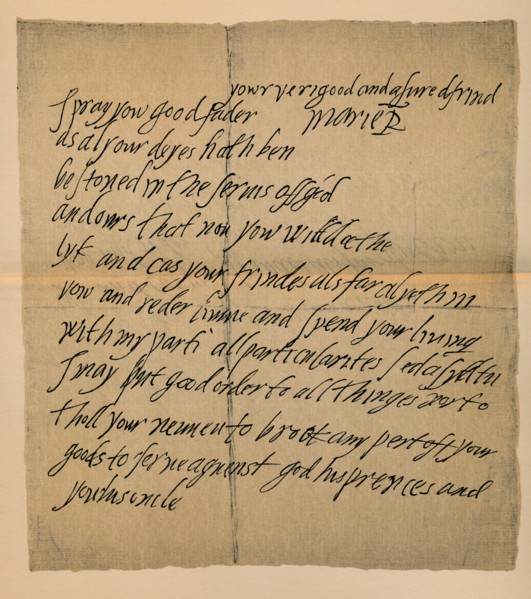 your veri good and asured frind
Marie R
I pray you good fader
as al your deyes hath ben
bestoned in the seruis off god
and ours that now you will do the
lyk and cas your frindes als far as yethin
you and reder and spend your liuing
with my parti all particularites
I may put good order to all thinges
tholl your to brook any pert off your
goods to serue agnenst god his prences and